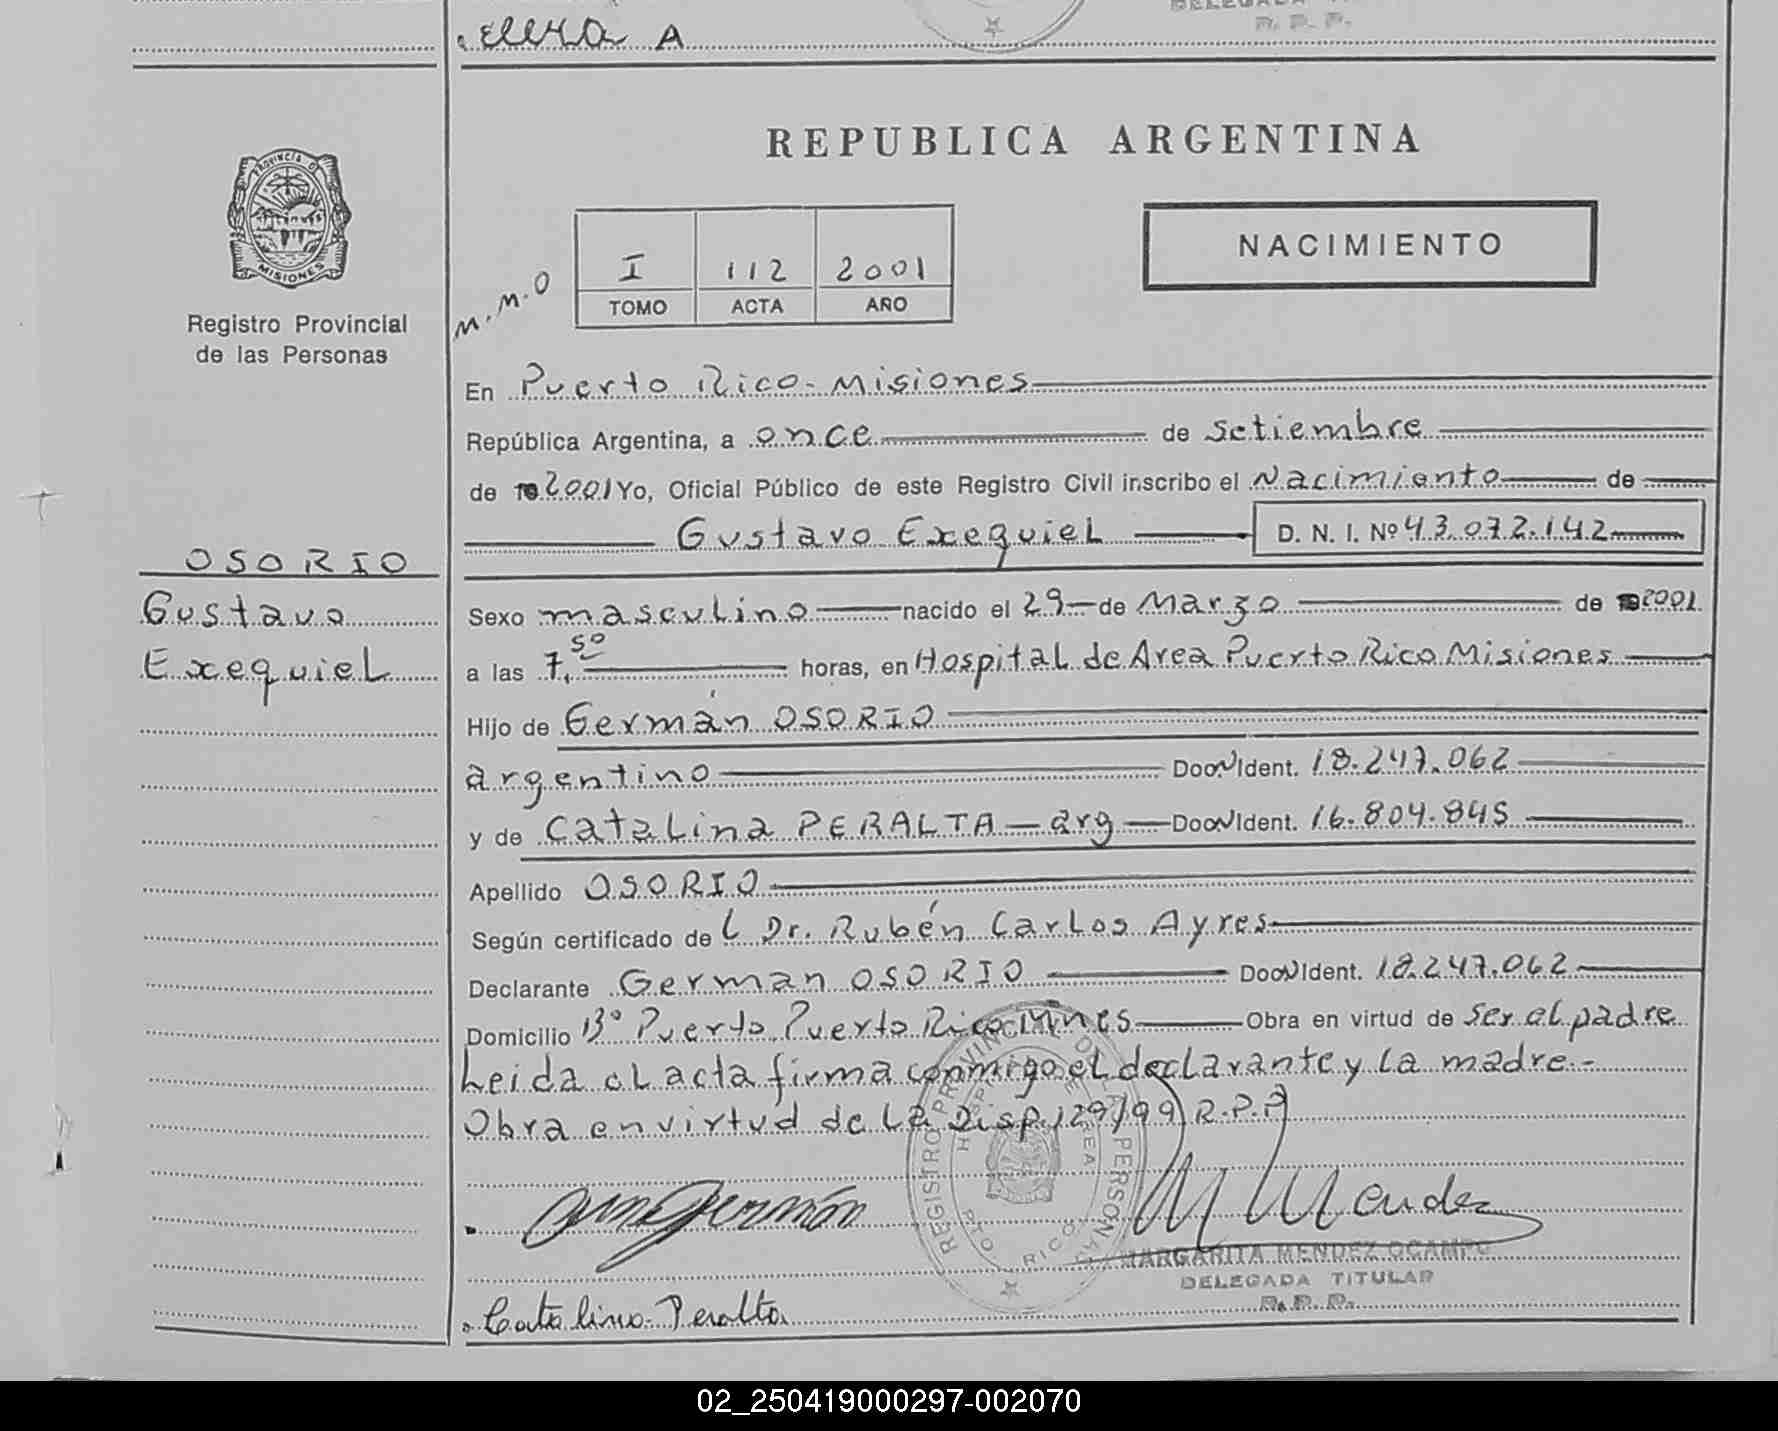 A
DELEGADA TITULAR
R. P. P.
PROVINCIA DE
MISIONES
Registro Provincial
de las Personas
REPUBLICA ARGENTINA
NACIMIENTO
M.M.O
I 112 2001
TOMO ACTA AÑO
En Puerto Rico-Misiones
República Argentina, a once de setiembre
de 2001 Yo, Oficial Público de este Registro Civil inscribo el Nacimiento de
Gustavo Exequiel D. N. I. Nº 43.072.142
OSORIO
Gustavo
Exequiel
Sexo masculino nacido el 29 de Marzo de 2001
a las 7,50 horas, en Hospital de Area Puerto Rico Misiones
Hijo de Germán OSORIO
argentino Doc N Ident. 18.247.062
y de Catalina PERALTA - arg - Doc N Ident. 16.804.845
Apellido OSORIO
Según certificado de L Dr. Rubén Carlos Ayres
Declarante German OSORIO Doc N Ident. 18.247.062
Domicilio Bº Puerto Puerto Rico Mnes Obra en virtud de ser el padre
Leida el acta firma conmigo el declarante y la madre.-
Obra en virtud de la Disp. 129/99 R.P.P
REGISTRO PROVINCIAL DE PERSONAS
PTO. RICO
M Mendez
MARGARITA MENDEZ OCAMPO
DELEGADA TITULAR
R. P. P.
Catalina Peralta
02_250419000297-002070